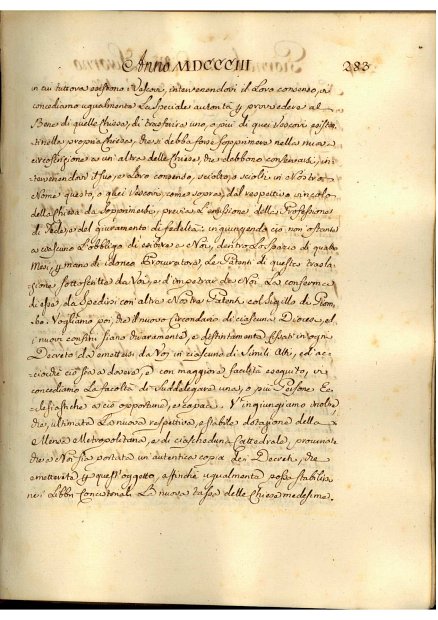 Anno MDCCCIII 283
in cui tuttora esistono i Vescovi, intervenendovi il Loro consenso, vi
concediamo ugualmente La speciale autorità p provvedere al
Bene di quelle Chiese, di trasferire uno, o più di quei Vescovi esisten
ti nella propria Chiesa, che si debba forse sopprimere nella nuova
circoscrizione a un'altra delle Chiese, che debbono conservarsi, in
tervenendovi il suo, e Loro consenso, sciolto, o sciolti in Nostro
Nome questo, o quei Vescovi, come sopra, dal respettivo vincolo
della Chiesa da sopprimersi, previa L'emissione della Professione
di Fede, e del giuramento di fedeltà: ingiungendo ciò non ostante
a ciascuno L'obbligo di esibire a Noi, dentro Lo spazio di quattro
Mesi, p mano di idoneo Procuratore, Le Patenti di questa trasla
zione sottoscritte da Voi, e d'impetrar da Noi La conferma
di essa da spedirsi con altre Nostre Patenti, col sigillo di Piom
bo. Vogliamo poi, che il nuovo Circondario di ciascuna Diocesi, e i
nuovi confini siano chiaramente, e distintamente fissati in ogni
Decreto da emettersi da Voi in ciascuno di simili Atti, ed ac
ciocchè ciò si faccia davvero, e con maggiore facilità eseguito, vi
concediamo La facoltà di suddelegare una, o più Persone Ec
clesiastiche a ciò opportune, e capaci. V'ingiungiamo inoltre
che, ultimata La nuova respettiva, e stabile dotazione della
Mensa Metropolitana, e di ciascheduna Cattedrale, procuriate
che a Noi sia portata un'autentica copia dei Decreti, che
emetterete p quest'oggetto, affinchè ugualmente possa stabilir
ne i Libbri Concistoriali La nuova tassa delle Chiese medesime.